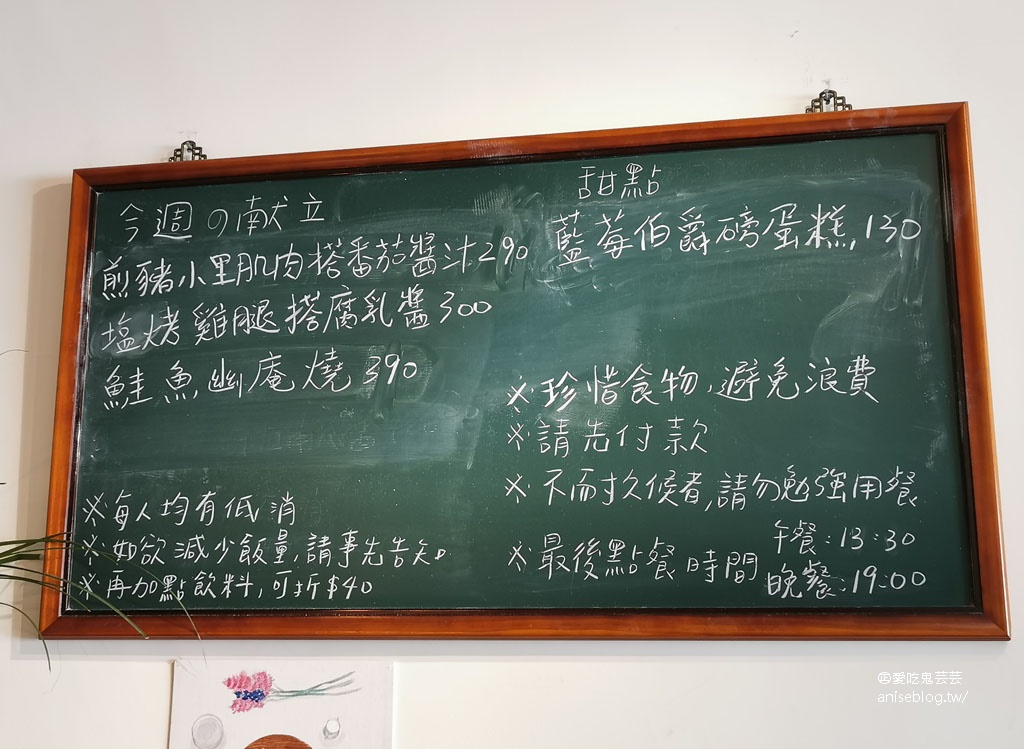 今週の献立
煎豬小里肌肉搭番茄醬汁290
塩烤雞腿搭腐乳醬300
鮭魚幽庵燒390
※每人均有低消
※如欲減少飯量,請事先告知。
※再加點飲料,可折$40
甜點
藍莓伯爵磅蛋糕,130
※珍惜食物,避免浪費
※請先付款
※不耐久候者,請勿勉強用餐
※最後點餐時間
午餐:13:30
晚餐:19:00
©愛吃鬼芸芸
aniseblog.tw/